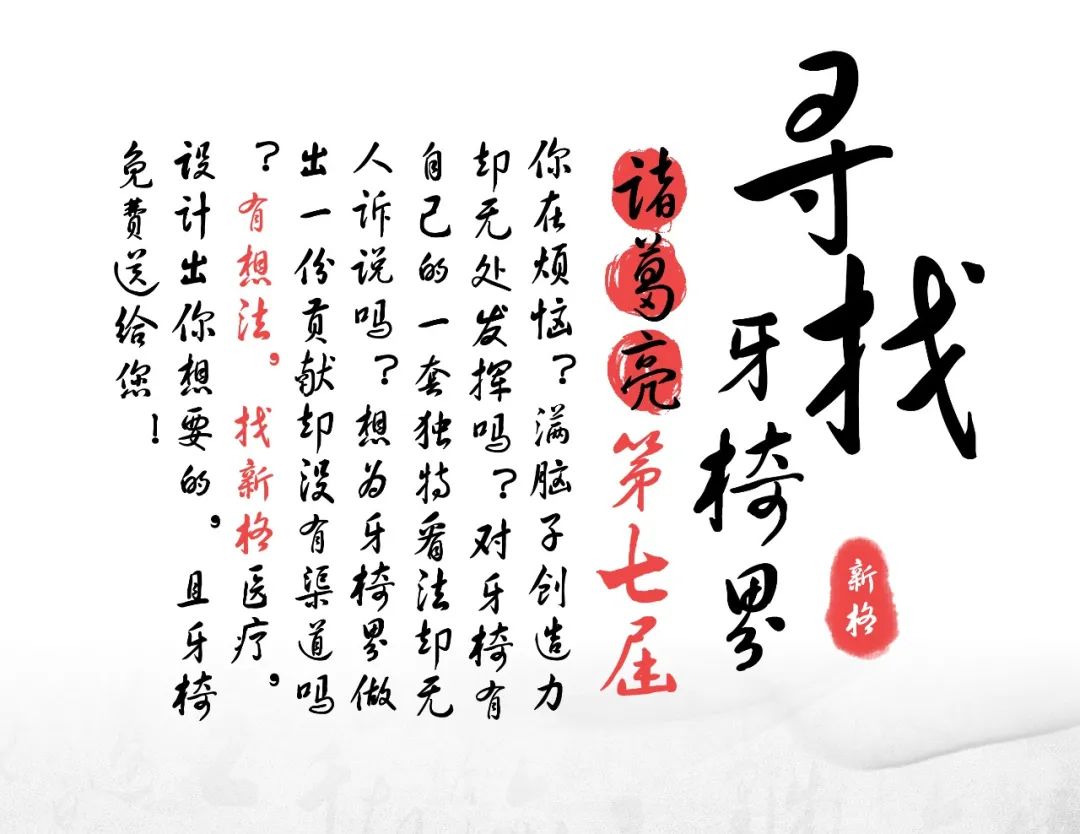 寻找
牙椅界
新格
诸葛亮第七届
你在烦恼？满脑子创造力
却无处发挥吗？对牙椅有
自己的一套独特看法却无
人诉说吗？想为牙椅界做
出一份贡献却没有渠道吗
？有想法，找新格医疗，
设计出你想要的，且牙椅
免费送给您！